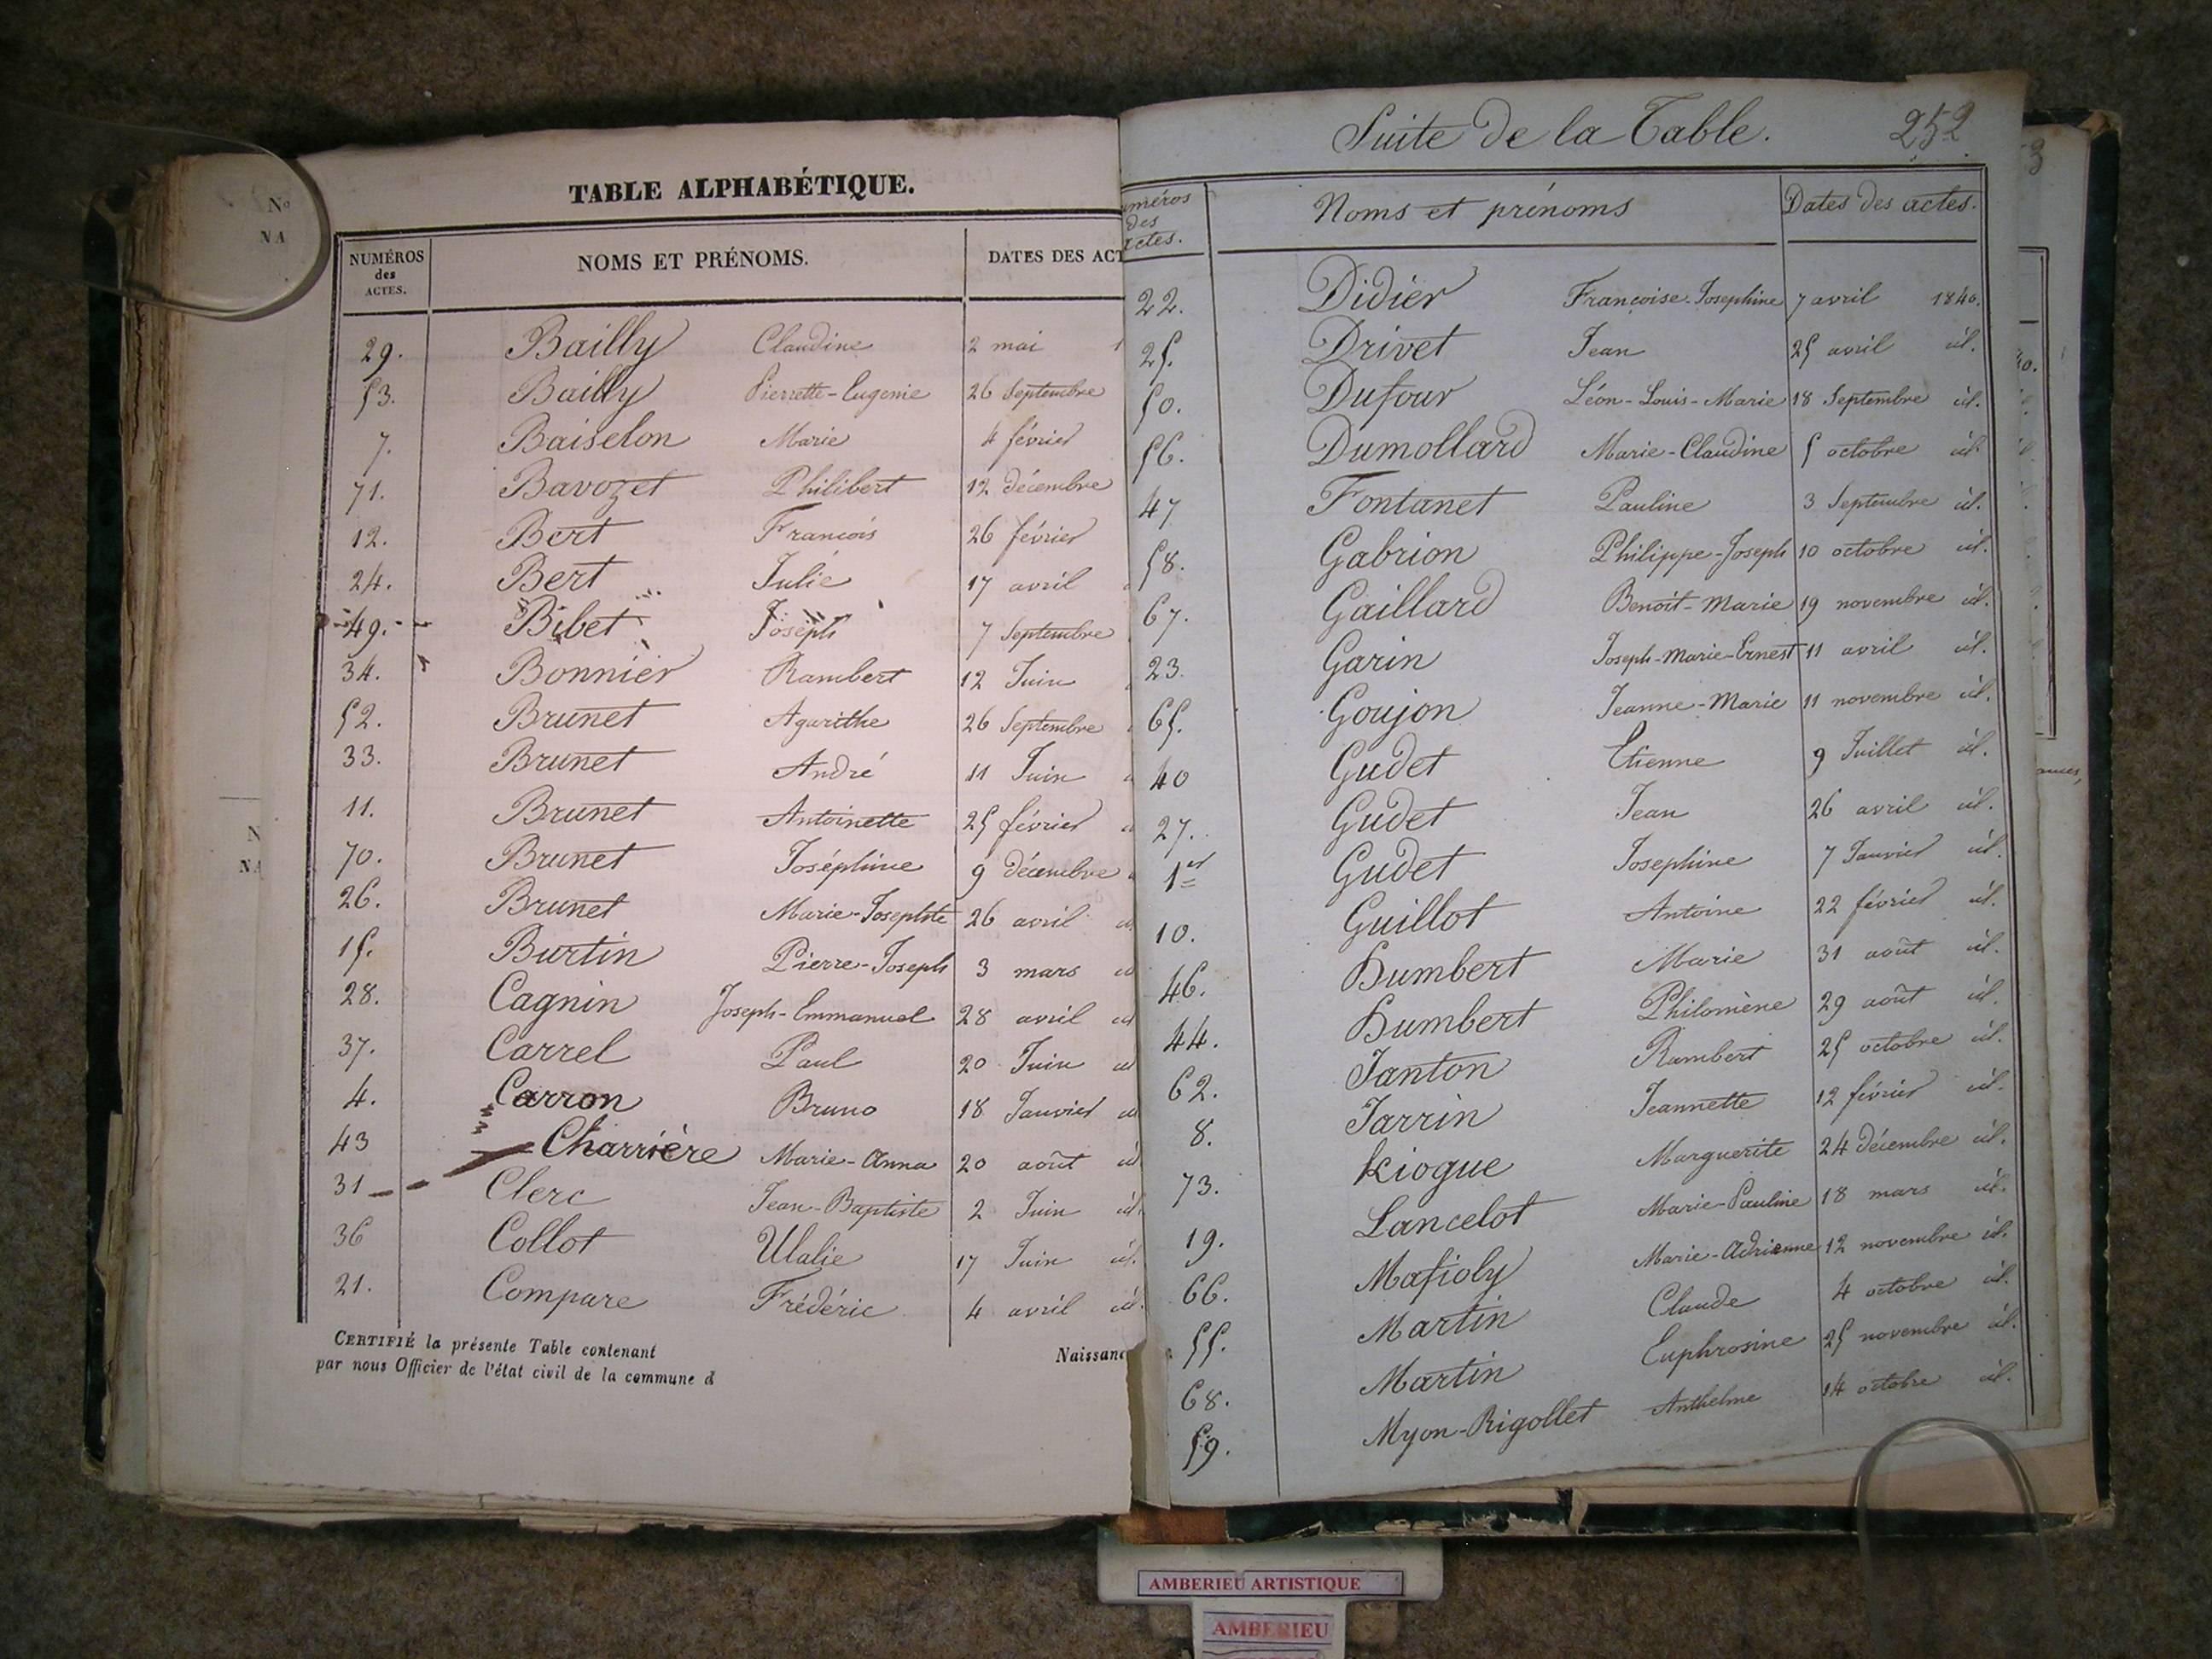 N°
NA
TABLE ALPHABÉTIQUE.
NUMÉROS des ACTES. NOMS ET PRÉNOMS. DATES DES ACT
29. Bailly Claudine 2 mai 1
53. Bailly Pierrette-Eugenie 26 Septembre
7. Baiselon Marie 4 février
71. Bavozet Philibert 12 décembre
12. Bert Francois 26 février
24. Bert Julie 17 avril
49. Bibet Joseph 7 Septembre
34. Bonnier Rambert 12 Juin
52. Brunet Agarithe 26 Septembre
33. Brunet André 11 Juin
11. Brunet Antoinette 25 février
70. Brunet Joséphine 9 décembre
26. Brunet Marie-Josephte 26 avril
15. Burtin Pierre-Joseph 3 mars id
28. Cagnin Joseph-Emmanuel 28 avril id
37. Carrel Paul 20 Juin id
4. Carron Bruno 18 Janvier id
43 Charrière Marie-Anna 20 août id
31 Clerc Jean-Baptiste 2 Juin id.
36 Collot Ulalie 17 Juin id.
21. Compare Frédéric 4 avril id.
CERTIFIÉ la présente Table contenant Naissanc
par nous Officier de l'état civil de la commune d
Suite de la Table. 252
uméros des actes. Noms et prénoms Dates des actes.
22. Didier Francoise-Josephine 7 avril 1840.
25. Drivet Jean 25 avril id.
50. Dufour Léon-Louis-Marie 18 Septembre id.
56. Dumollard Marie-Claudine 5 octobre id.
47 Fontanet Pauline 3 Septembre id.
58. Gabrion Philippe-Joseph 10 octobre id.
67. Gaillard Benoit-Marie 19 novembre id.
23. Garin Joseph-Marie-Ernest 11 avril id.
65. Goujon Jeanne-Marie 11 novembre id.
40 Gudet Etienne 9 Juillet id.
27. Gudet Jean 26 avril id.
1er Gudet Josephine 7 Janvier id.
10. Guillot Antoine 22 février id.
46. Humbert Marie 31 août id.
44. Humbert Philomène 29 août id.
62. Janton Rambert 25 octobre id.
8. Jarrin Jeannette 12 février id.
73. Kiogue Marguerite 24 décembre id.
19. Lancelot Marie-Pauline 18 mars id.
66. Mafioly Marie-Adrienne 12 novembre id.
55. Martin Claude 4 octobre id.
68. Martin Euphrosine 25 novembre id.
59. Myon-Rigollet Anthelme 14 octobre id.
AMBERIEU ARTISTIQUE
AMBERIEU